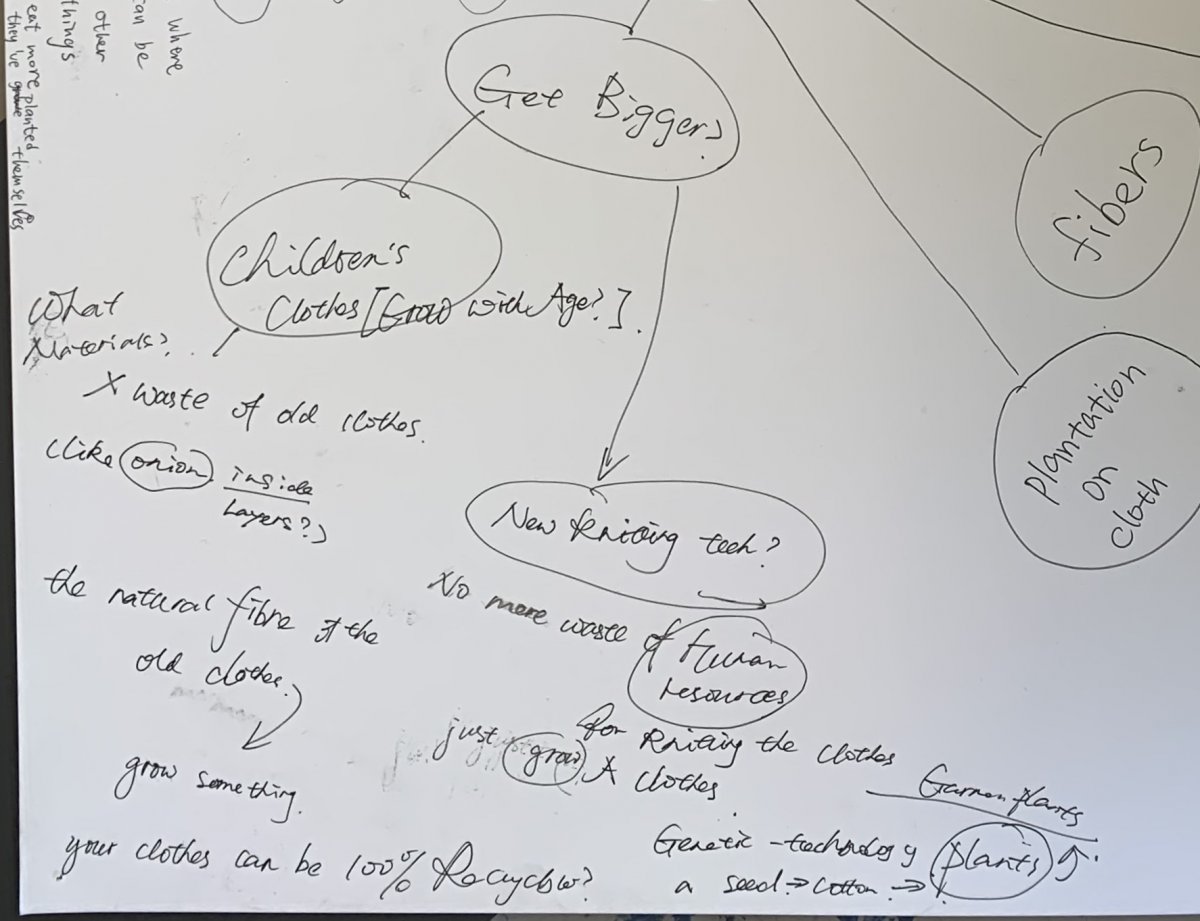 where
can be
other
things
eat more planted
they've themselves
Get Bigger?
Children's
Clothes [Grow with Age?].
What
Materials?
X waste of old clothes.
(like onion inside
Layers?)
the natural fibre of the
old clothes.
grow something.
your clothes can be 100%
fibers
Plantation
on
cloth
New Kniting tech?
No more waste of Human
resources
for Kniting the clothes
just grow A clothes
plants
Genetic - technology plants
a seed → cotton →